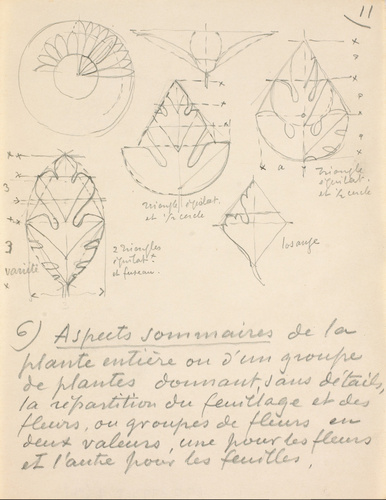 11
triangle équilat.
et 1/2 cercle
triangle
équilat.
et 1/2 cercle
a
3
3
variété
2 triangles
équilat.
et fuseau.
losange
6) Aspects sommaires de la
plante entière ou d'un groupe
de plantes donnant, sans détails,
la répartition du feuillage et des
fleurs, ou groupes de fleurs en
deux valeurs, une pour les fleurs
et l'autre pour les feuilles.